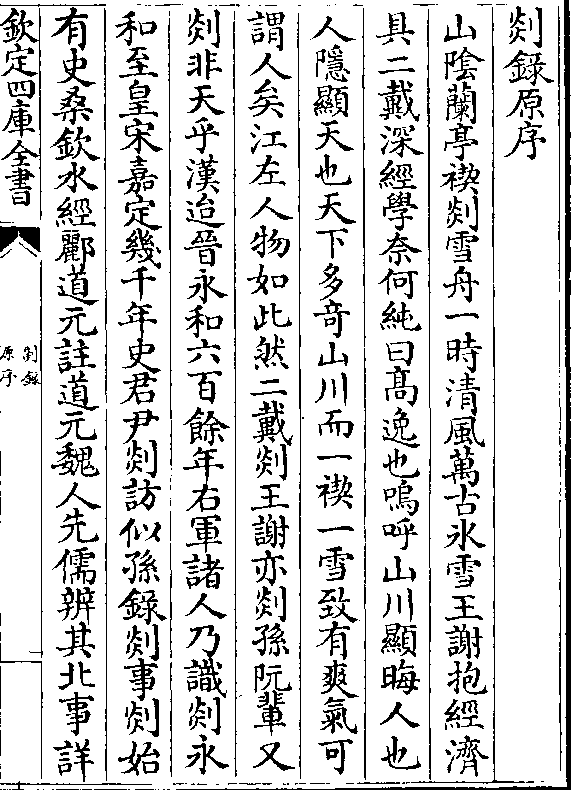 剡錄原序
山隂蘭亭禊剡雪舟一時清風萬古氷雪王謝抱經濟
具二戴深經學奈何純曰髙逸也嗚呼山川顯晦人也
人隱顯天也天下多竒山川而一禊一雪致有爽氣可
謂人矣江左人物如此然二戴剡王謝亦剡孫阮輩又
剡非天乎漢迨晉永和六百餘年右軍諸人乃識剡永
和至皇宋嘉定幾千年史君尹剡訪似孫錄剡事剡始
有史桑欽水經酈道元註道元魏人先儒辨其北事詳
欽定四庫全書
剡錄
原序